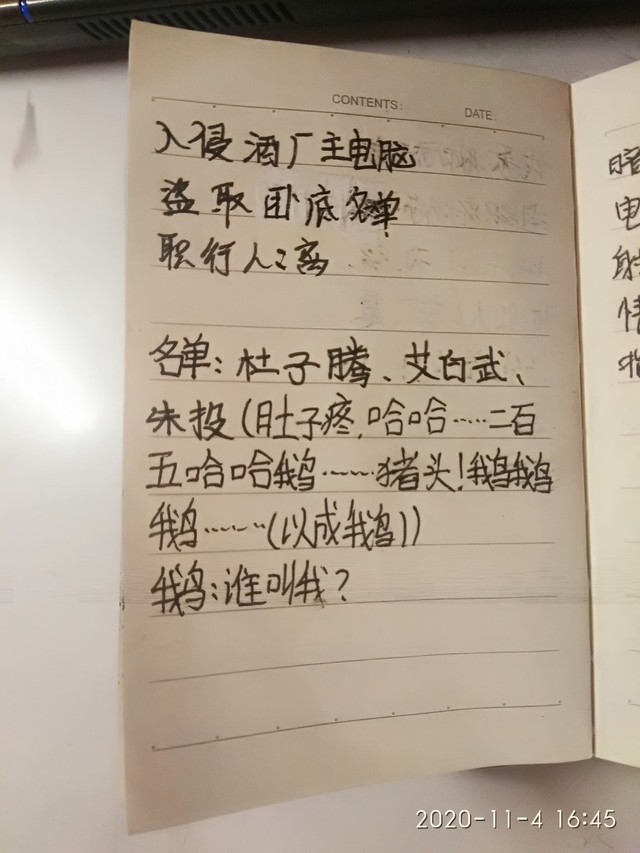 CONTENTS:
DATE:
入侵酒厂主电脑
盗取卧底名单
职行人:离
名单:杜子腾、艾白武、
朱投(肚子疼,哈哈……二百
五哈哈鹅……猪头!鹅鹅
鹅……(以成鹅))
鹅:谁叫我?
暗
电
射
情
指
2020-11-4 16:45